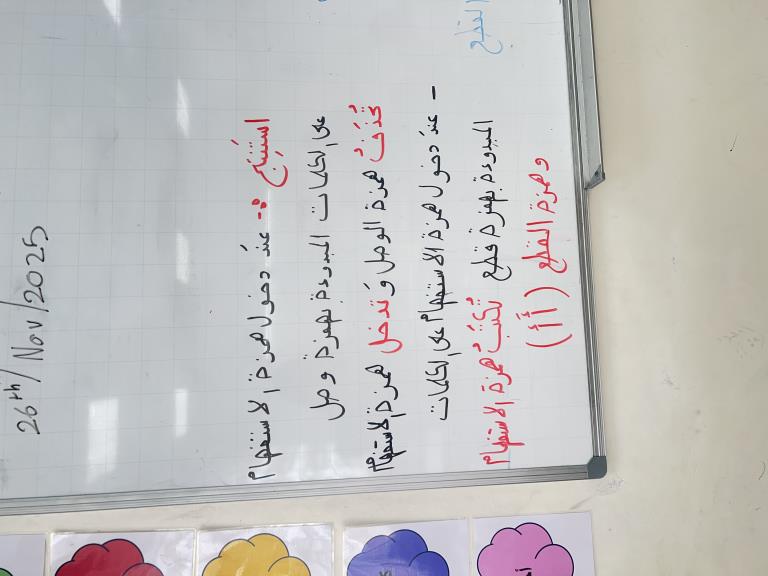 26th/Nov/2025
أستنتج :- عند دخول همزة الاستفهام
على الكلمات المبدوءة بهمزة وصل
تُحذَفُ همزة الوصل وَتدخل همزة الاستفهام
- عند دخول همزة الاستفهام على الكلمات
المبدوءة بهمزة قطع تُكتَبُ همزة الاستفهام
وهمزة القطع (أَأَ)
القطع